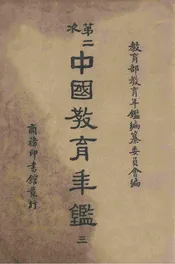 教育部教育年鑑編纂委員會編
第二次
中國教育年鑑
三
商務印書館發行